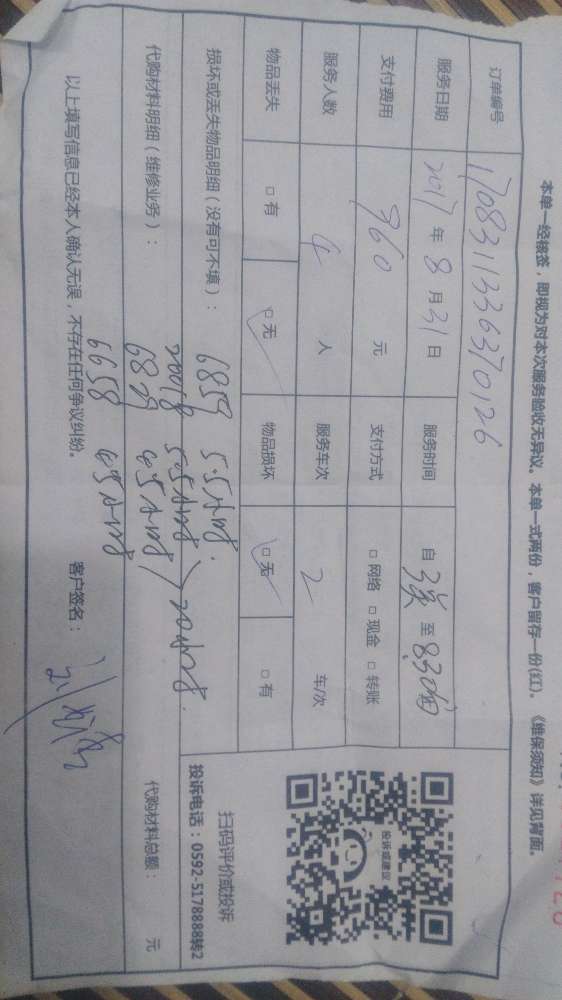 本单一经核签，即视为对本次服务验收无异议。本单一式两份，客户留存一份(红)。《维保须知》详见背面。
订单编号 170831133637 0126
服务日期 2017年8月31日 服务时间 自 至
支付费用 960 元 支付方式 □网络 □现金 □转账
服务人数 4 人 服务车次 2 车/次
物品丢失 □有 □无 物品损坏 □无 □有
投诉或建议
扫码评价或投诉
投诉电话：0592-5178888转2
损坏或丢失物品明细（没有可不填）： 6859 5.5小时
5.5小时 20小时
代购材料明细（维修业务）： 6829 4.5小时 代购材料总额： 元
6658
以上填写信息已经本人确认无误，不存在任何争议纠纷。 客户签名：